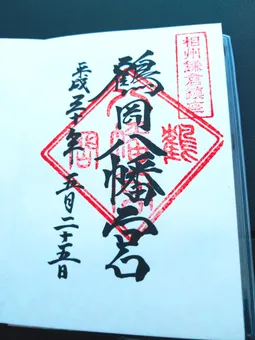 相州鎌倉鎮座
鶴岡八幡宮
平成三十年 五月二十五日
鶴
岡